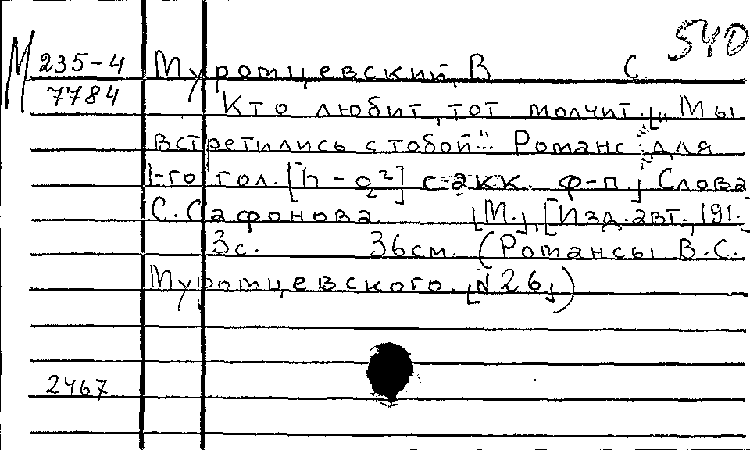 540
М 235-4 Муромцевский, В С.
7784 Кто любит, тот молчит. [„Мы
встретились с тобой". Романс для
1-го гол. [h - g²] с акк. ф-п.] Слова
С. Сафонова. [М.], [Изд. авт., 191.]
3с. 36см. (Романсы В.С.
Муромцевского. [№26])
2467